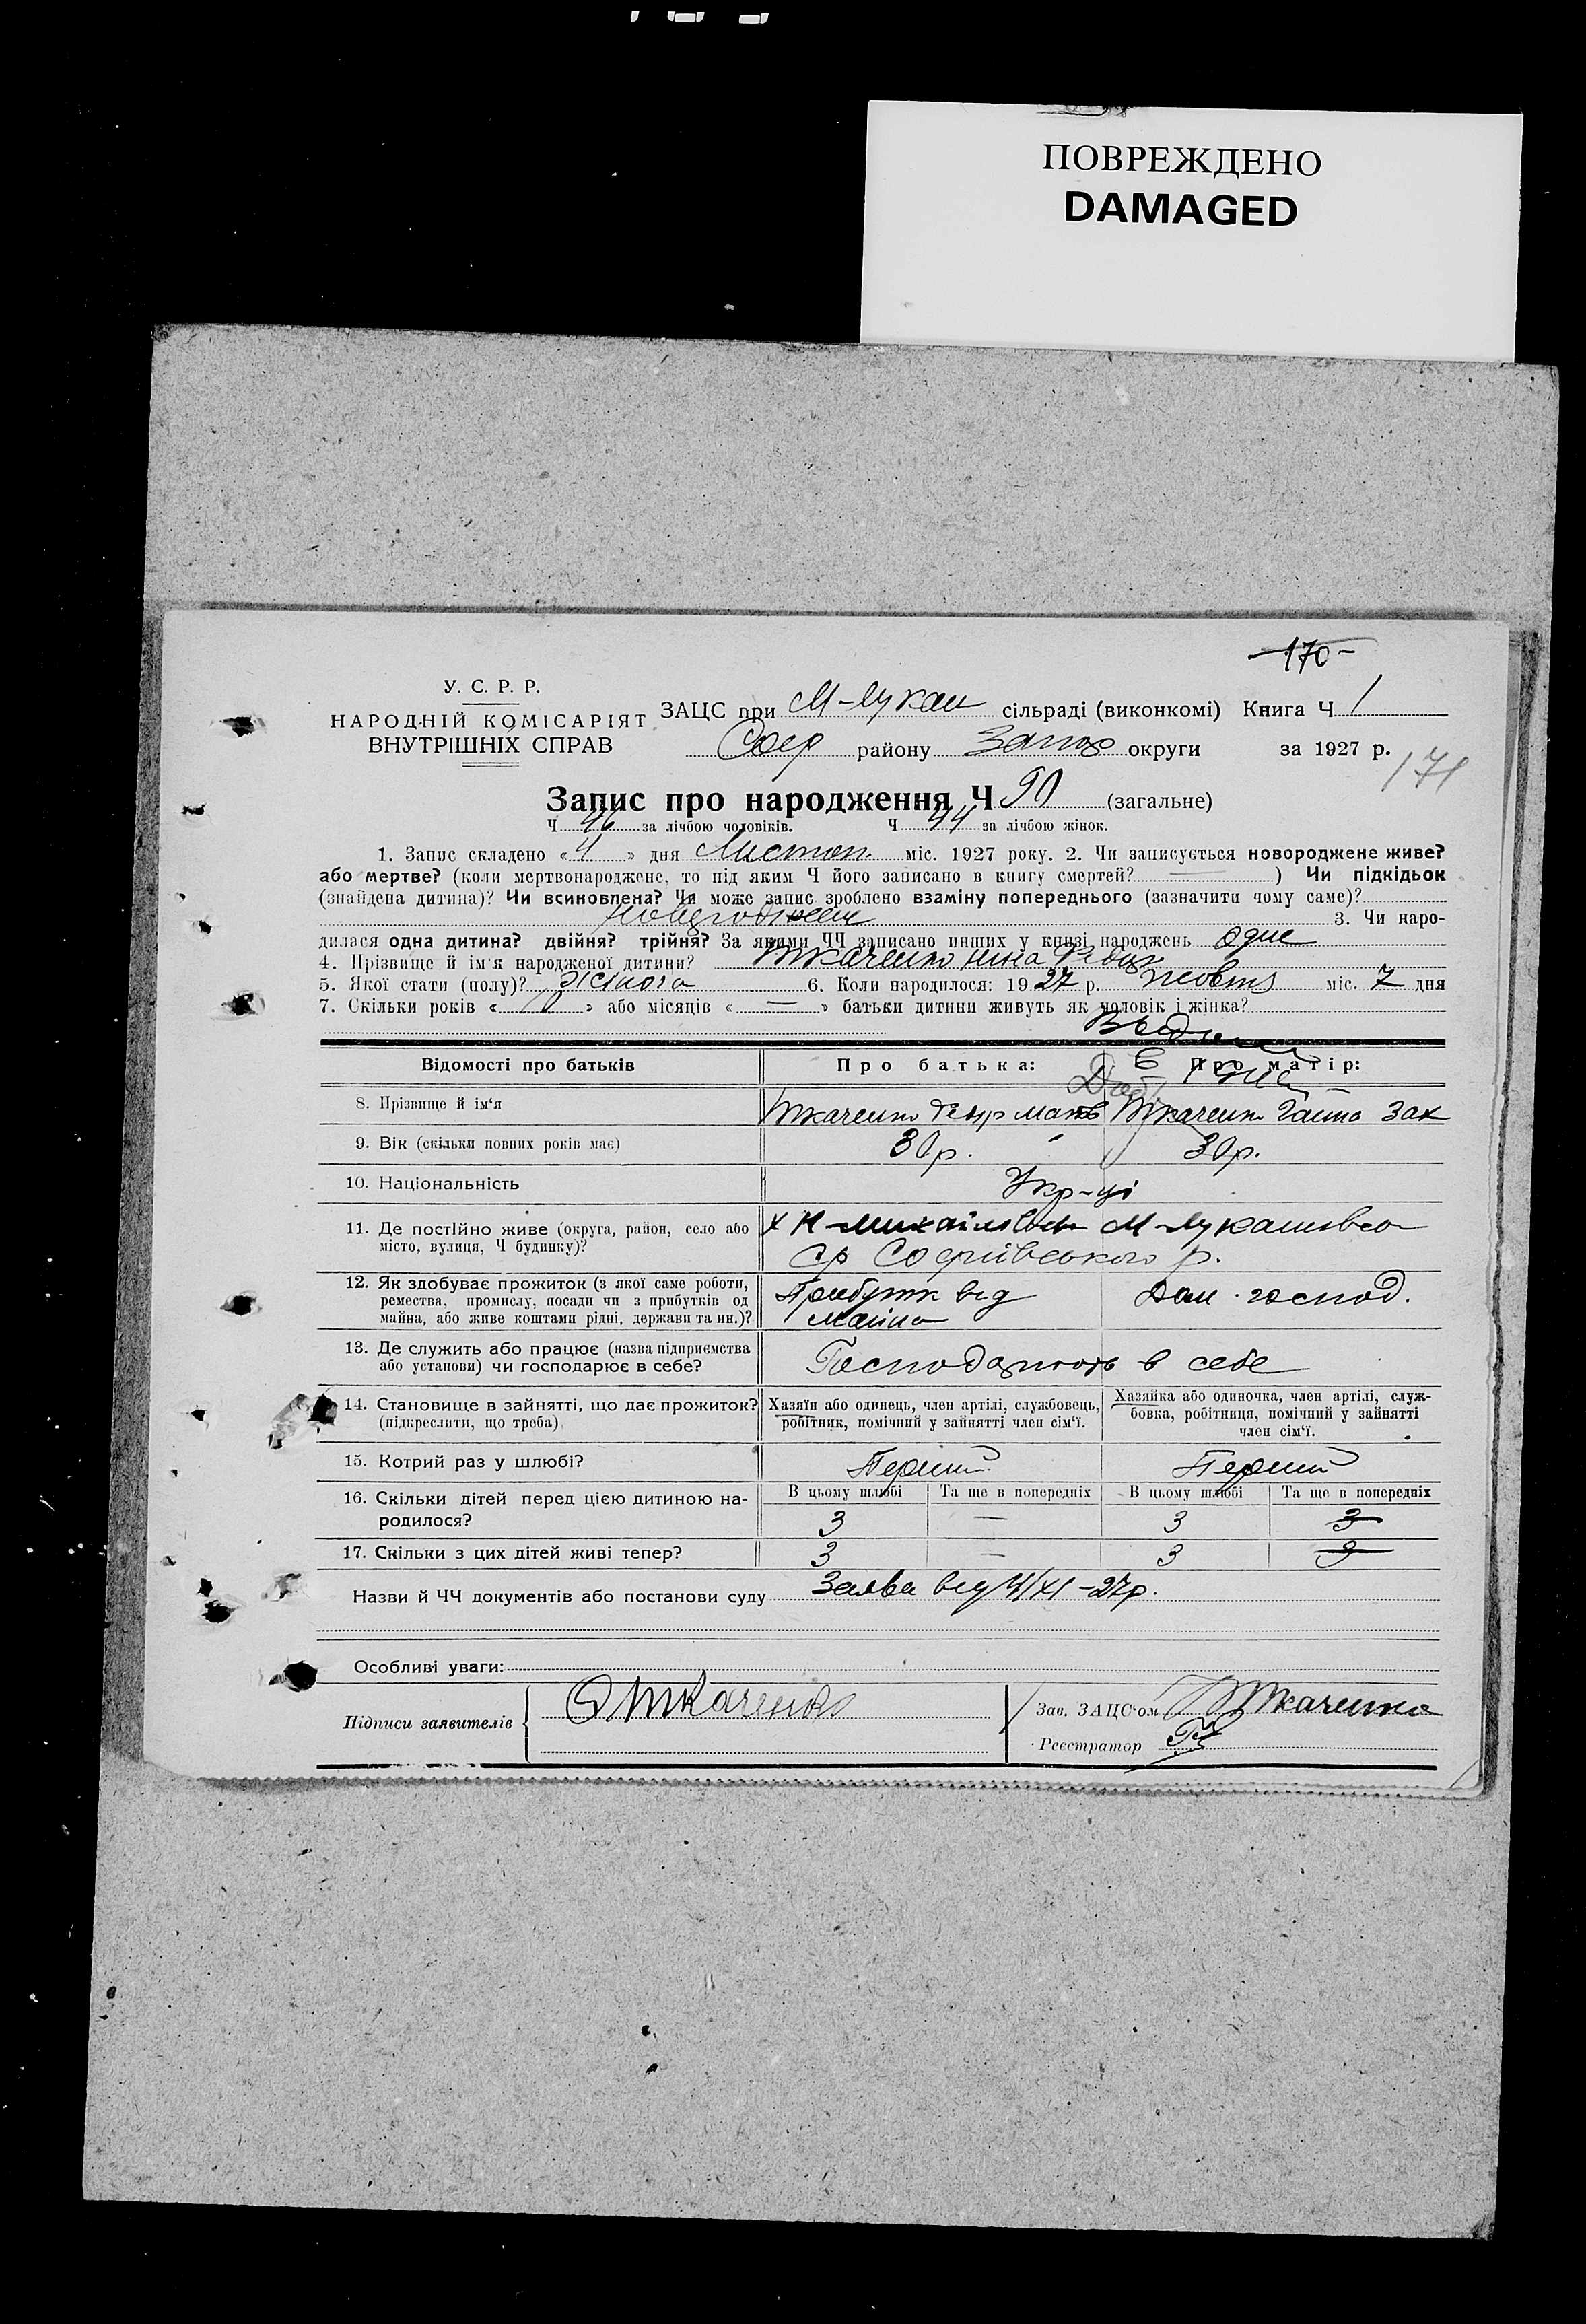 ПОВРЕЖДЕНО
DAMAGED
170
У. С. Р. Р.
НАРОДНІЙ КОМІСАРІЯТ
ВНУТРІШНІХ СПРАВ
ЗАЦС при М-Лукаш сільраді (виконкомі) Книга Ч 1
Соф району Запор округи за 1927 р.
171
Запис про народження Ч 90 (загальне)
Ч 46 за лічбою чоловіків. Ч 44 за лічбою жінок.
1. Запис складено « 4 » дня Листоп міс. 1927 року. 2. Чи записується новороджене живе?
або мертве? (коли мертвонароджене, то під яким Ч його записано в книгу смертей? — ) Чи підкідьок
(знайдена дитина)? Чи всиновлена? Чи може запис зроблено взаміну попереднього (зазначити чому саме)?
3. Чи наро-
дилася одна дитина? двійня? трійня? За якими ЧЧ записано инших у книзі народжень одне
4. Прізвище й ім'я народженої дитини? Ткаченко Ніна
5. Якої стати (полу)? жіноча 6. Коли народилося: 1927 р. жовтня міс. 7 дня
7. Скільки років « 10 » або місяців « — » батьки дитини живуть як чоловік і жінка?
Відомості про батьків
Про батька:
Про матір:
8. Прізвище й ім'я
Ткаченко
Ткаченко Зах
9. Вік (скільки повних років має)
30 р.
30 р.
10. Національність
Укр-ці
11. Де постійно живе (округа, район, село або
місто, вулиця, Ч будинку)?
М-Лукашівсь
с/р Софіївського р.
12. Як здобуває прожиток (з якої саме роботи,
ремества, промислу, посади чи з прибутків од
майна, або живе коштами рідні, держави та ин.)?
Прибутк від
майна
Дом. господ.
13. Де служить або працює (назва підприємства
або установи) чи господарює в себе?
Господарюють в себе
14. Становище в зайнятті, що дає прожиток?
(підкреслити, що треба)
Хазяїн або одинець, член артілі, службовець,
робітник, помічний у зайнятті член сім'ї.
Хазяйка або одиночка, член артілі, служ-
бовка, робітниця, помічний у зайнятті
член сім'ї.
15. Котрий раз у шлюбі?
Перший
Перший
16. Скільки дітей перед цією дитиною на-
родилося?
В цьому шлюбі
Та ще в попередніх
В цьому шлюбі
Та ще в попередніх
3 — 3 3
17. Скільки з цих дітей живі тепер?
3 — 3 3
Назви й ЧЧ документів або постанови суду Заява від 4/XI-27р.
Особливі уваги:
Підписи заявителів
Ткаченко
Зав. ЗАЦС'ом Ткаченко
Реєстратор